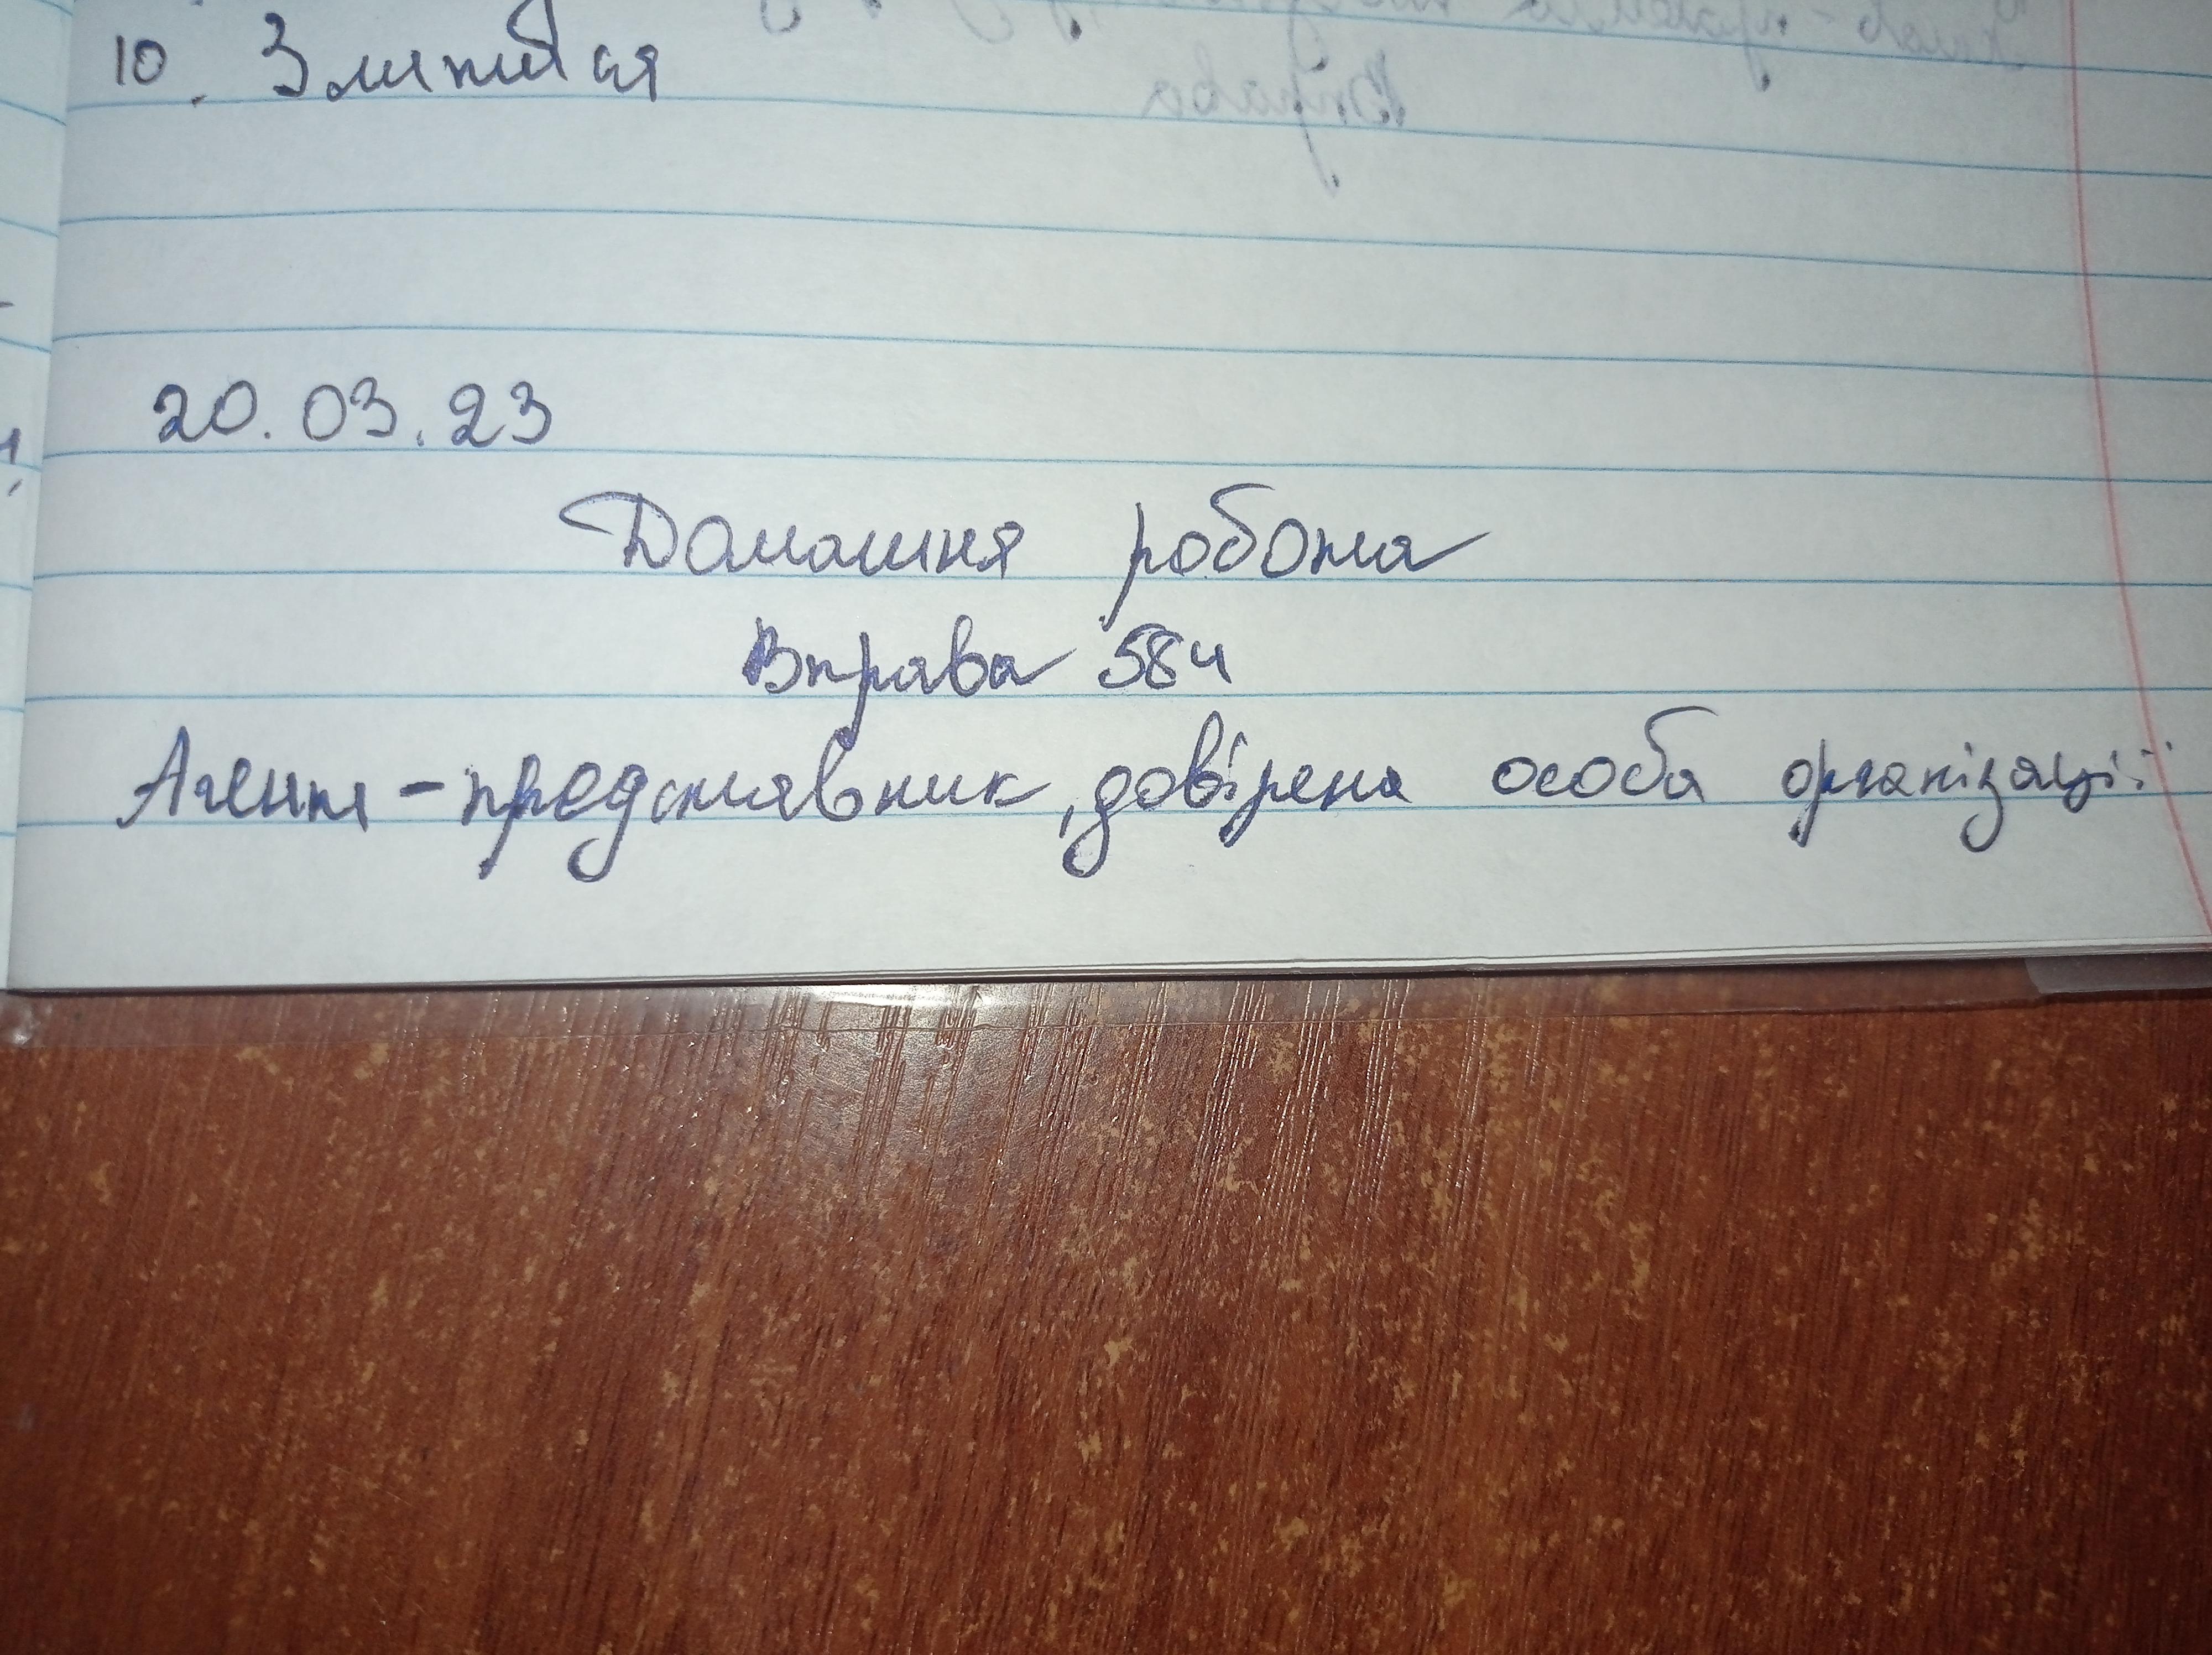 10. Злитися
20.03.23
Домашня робота
Вправа 584
Агент - представник, довірена особа організації